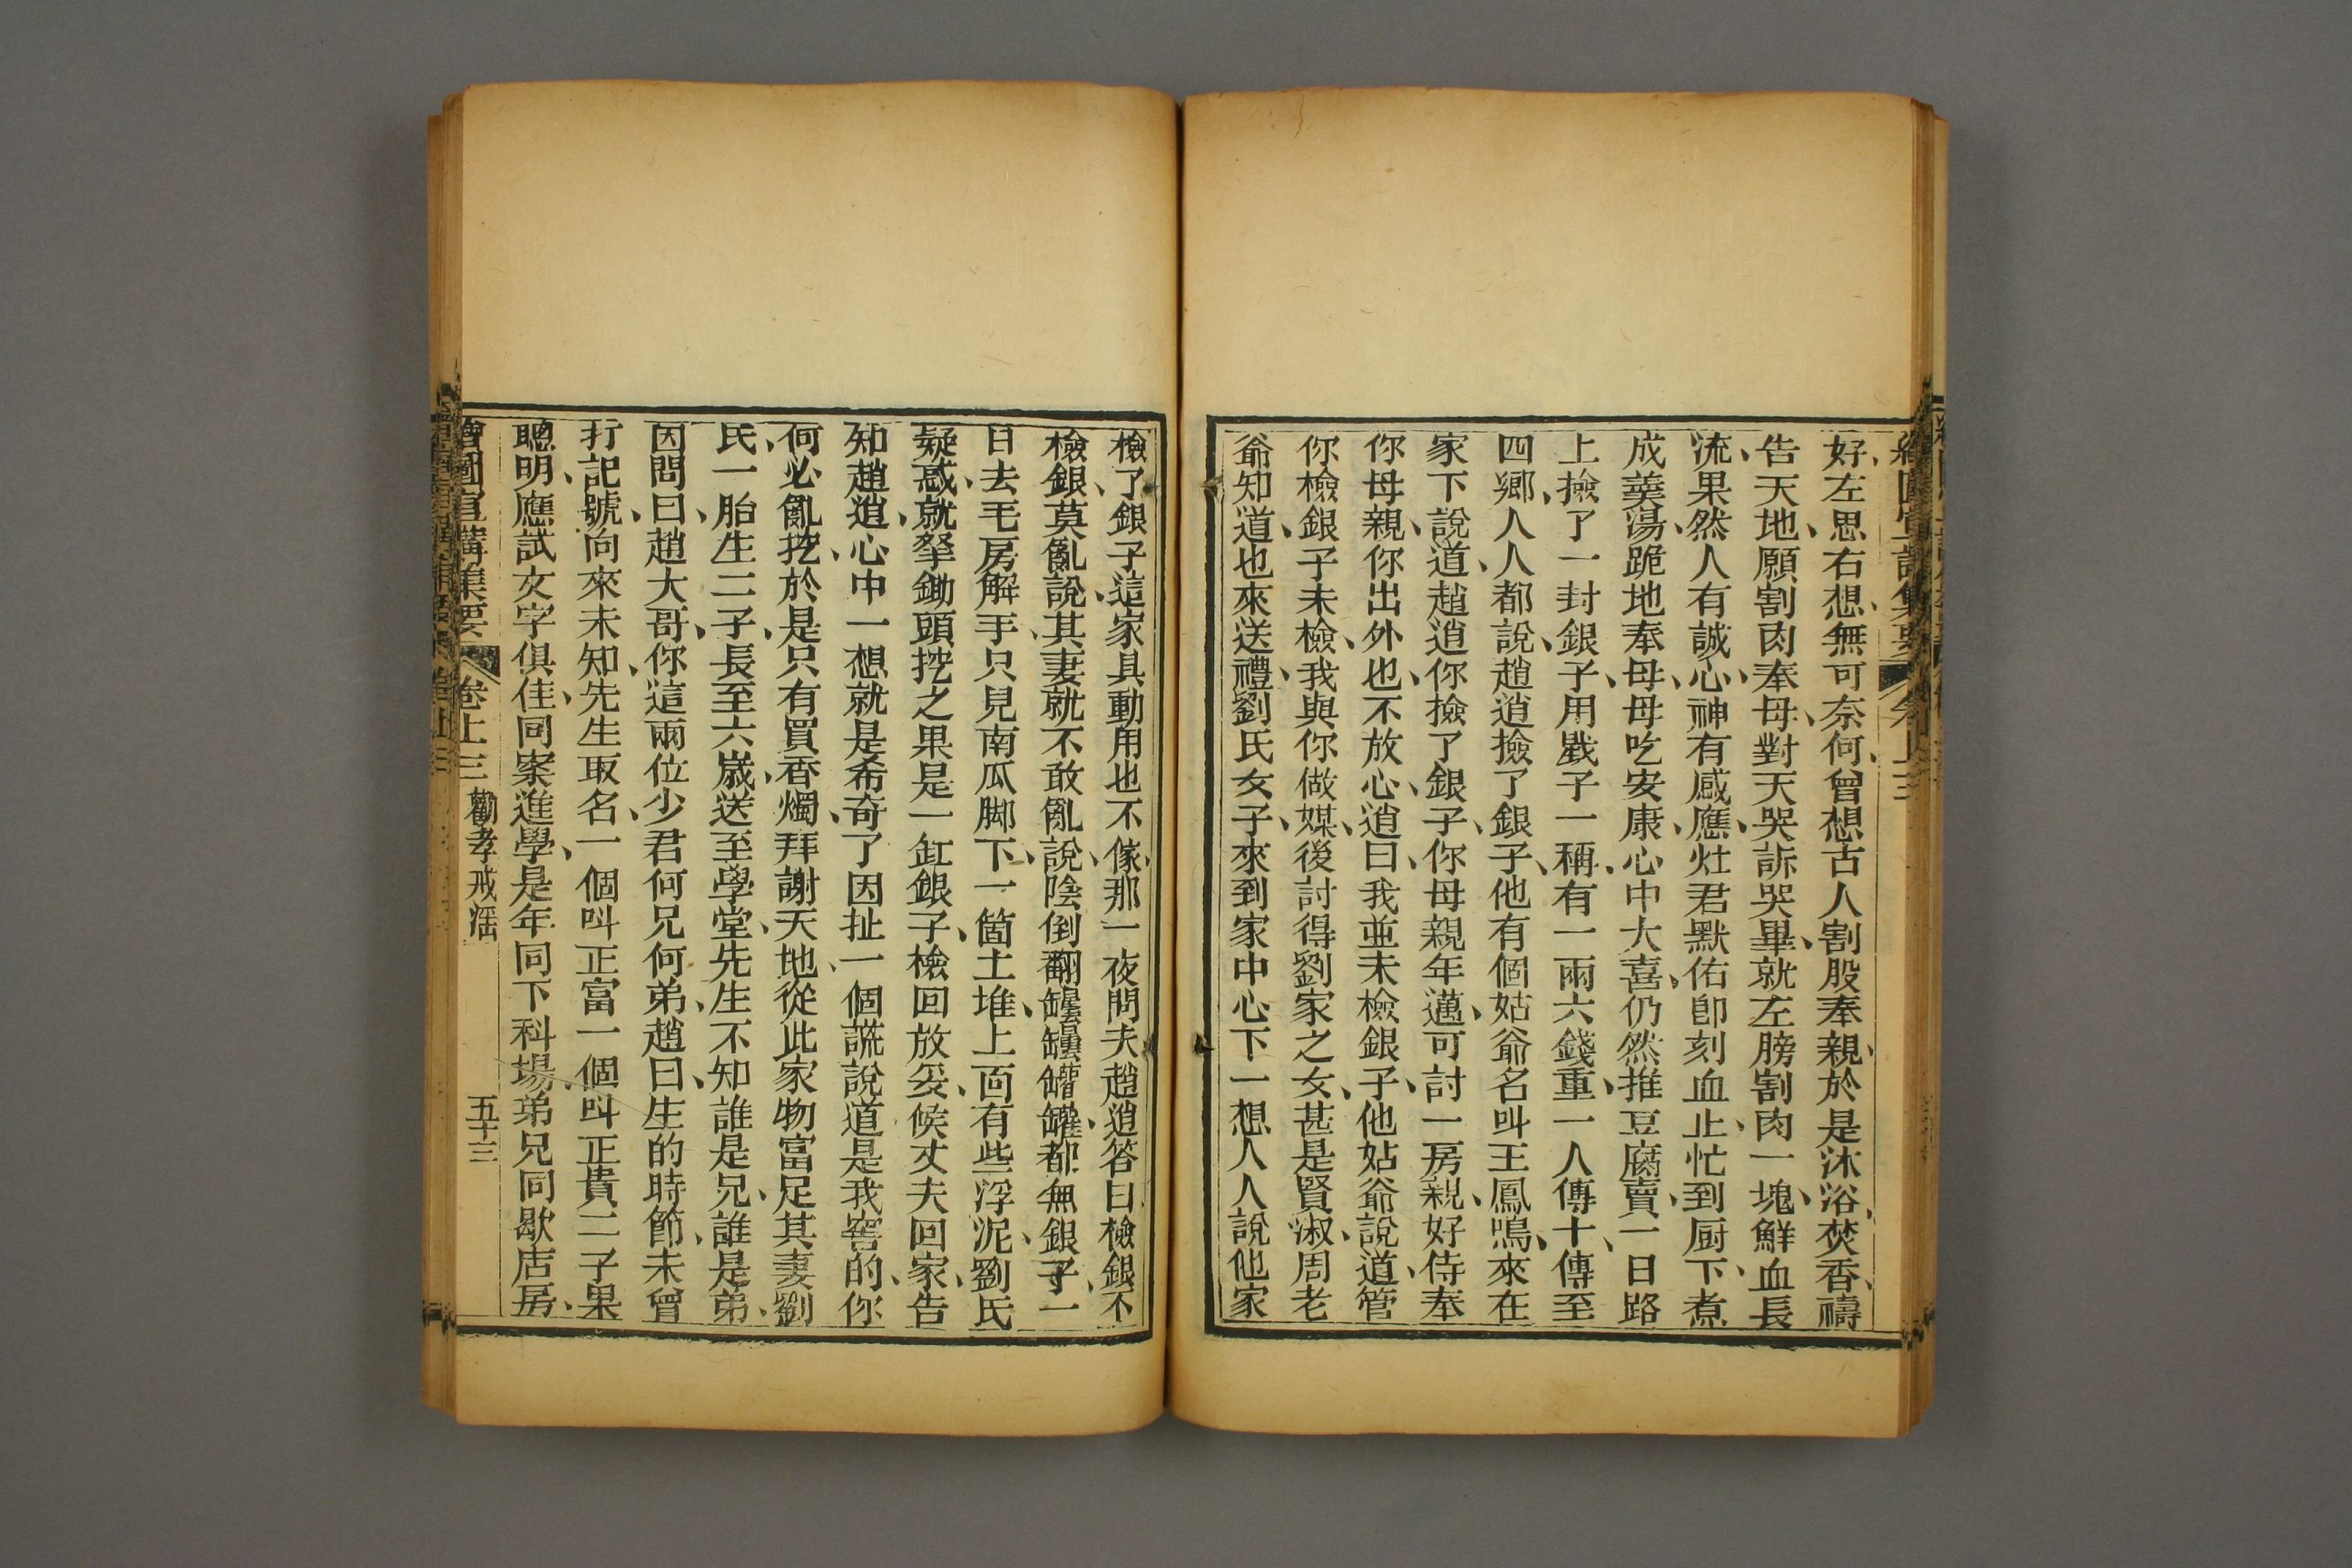 好左思右想、無可奈何、曾想古人割股奉親、於是沐浴、焚香、禱
告天地、願割肉奉母、對天哭訴哭畢、就左膀割肉一塊、鮮血長
流、果然人有誠心、神有感應、灶君默佑卽刻血止、忙到厨下、煮
成羹湯跪地奉母、母吃安康、心中大喜、仍然推豆腐賣、一日路
上撿了一封銀子、用戥子一稱、有一兩六錢重、一人傳十、傳至
四鄉、人人都說、趙逍撿了銀子、他有個姑爺名叫王鳳鳴、來在
家下說道、趙逍你撿了銀子、你母親年邁、可討一房親、好侍奉
你母親、你出外也、不放心、逍曰、我並未檢銀子、他姑爺說道、管
你檢銀子未檢、我與你做媒、後討得劉家之女、甚是賢淑、周老
爺知道、也來送禮、劉氏女子、來到家中心下一想人人說他家
檢了銀子、這家具動用也不像、那一夜問夫趙逍答曰檢銀不
檢銀、莫亂說、其妻就不敢亂說、陰倒翻罎罎罐罐、都無銀子、一
日去毛房解手、只見南瓜脚下、一箇土堆、上面有些浮泥、劉氏
疑惑、就拏鋤頭挖之果是一缸銀子、檢回放妥、候丈夫回家、告
知趙逍、心中一想就是希奇了因扯一個謊說道是我窖的、你
何必亂挖、於是只有買香燭、拜謝天地、從此家物富足其妻劉
氏、一胎生二子、長至六歲、送至學堂、先生不知誰是兄、誰是弟、
因問曰、趙大哥、你這兩位少君何兄何弟、趙曰、生的時節、未曾
打記號、向來未知、先生取名、一個叫正富一個叫正貴二子果
聰明、應試文字俱佳、同案進學、是年同下科場、弟兄同歇店房、
繪圖宣講集要 卷上三 勸孝戒滛 五十三